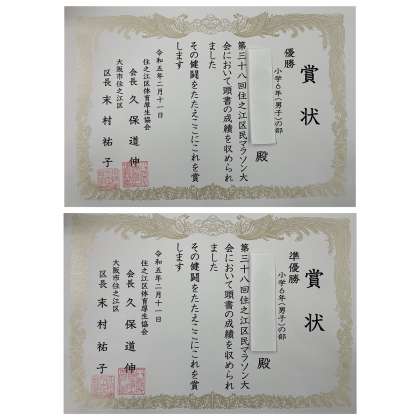 賞状
優勝
小学6年(男子)の部
殿
第三十八回住之江区民マラソン大
会において頭書の成績を収められ
ました
その健闘をたたえここにこれを賞
します
令和五年二月十一日
住之江区体育厚生協会
会長 久保道伸
大阪市住之江区
区長 末村祐子
賞状
準優勝
小学6年(男子)の部
殿
第三十八回住之江区民マラソン大
会において頭書の成績を収められ
ました
その健闘をたたえここにこれを賞
します
令和五年二月十一日
住之江区体育厚生協会
会長 久保道伸
大阪市住之江区
区長 末村祐子